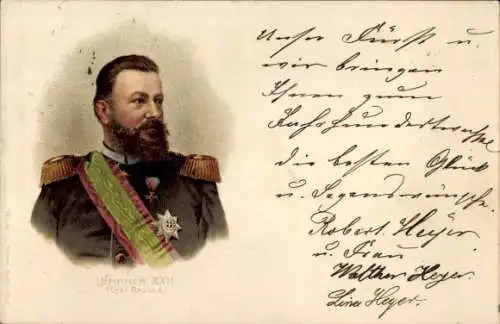 Unser Fürst u.
wir bringen
Ihnen zum
Jahrhundertwechsel
die besten Glück
u. Segenswünsche
Robert Heyer
u. Frau
Walther Heyer.
Lina Heyer.
Heinrich XXII